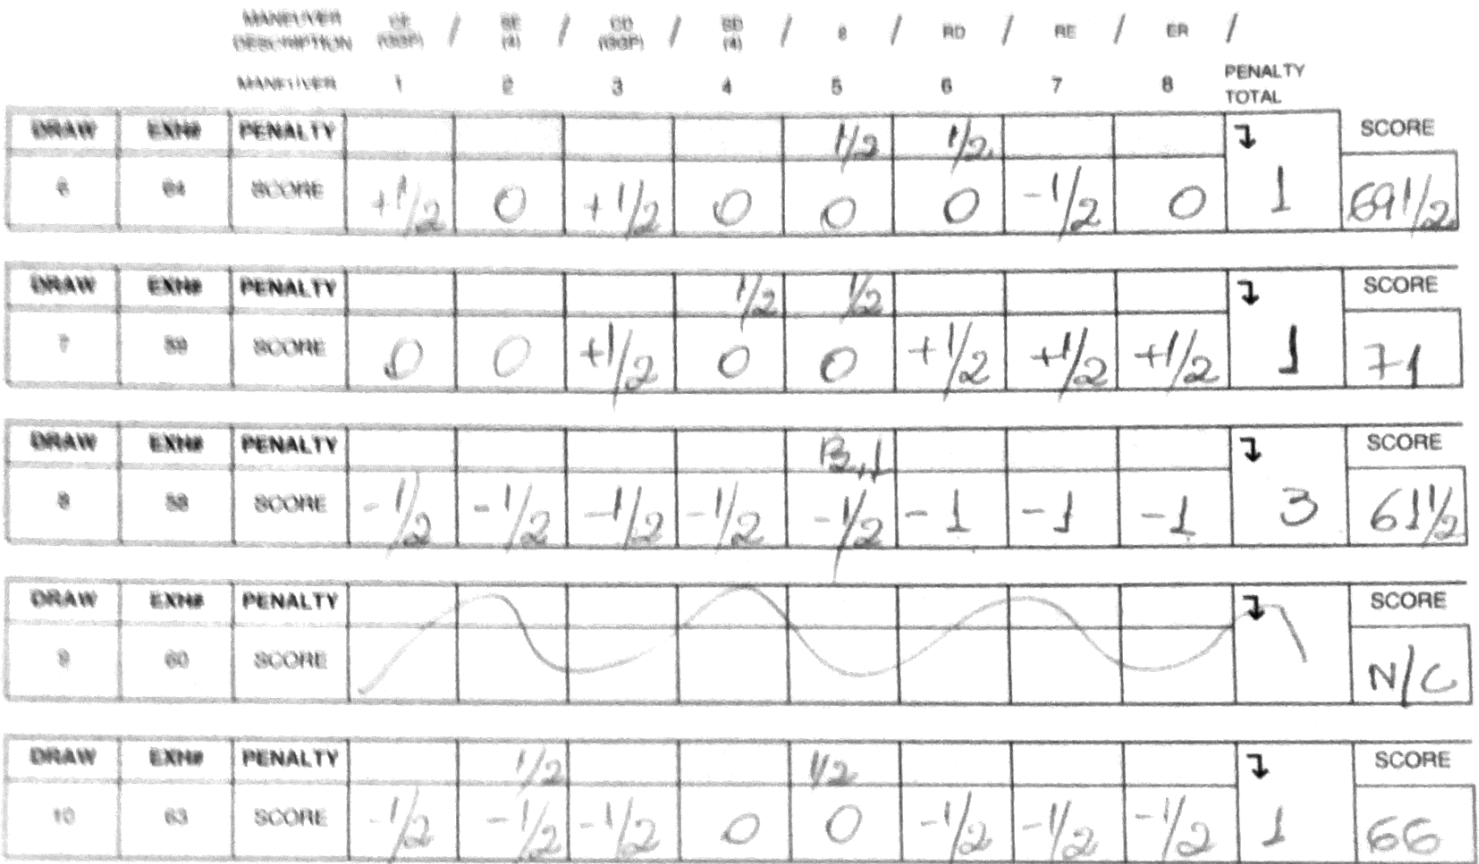 MANEUVER / / / / / / / /
DESCRIPTION (4) (4) 8 RD RE ER
MANEUVER 1 2 3 4 5 6 7 8 PENALTY TOTAL
DRAW EXH# PENALTY 1/2 1/2 SCORE
6 64 SCORE +1/2 0 +1/2 0 0 0 -1/2 0 1 69 1/2
DRAW EXH# PENALTY 1/2 1/2 SCORE
7 59 SCORE 0 0 +1/2 0 0 +1/2 +1/2 +1/2 1 71
DRAW EXH# PENALTY B,1 SCORE
8 58 SCORE -1/2 -1/2 -1/2 -1/2 -1/2 -1 -1 -1 3 61 1/2
DRAW EXH# PENALTY SCORE
9 60 SCORE N/C
DRAW EXH# PENALTY 1/2 1/2 SCORE
10 63 SCORE -1/2 -1/2 -1/2 0 0 -1/2 -1/2 -1/2 1 66